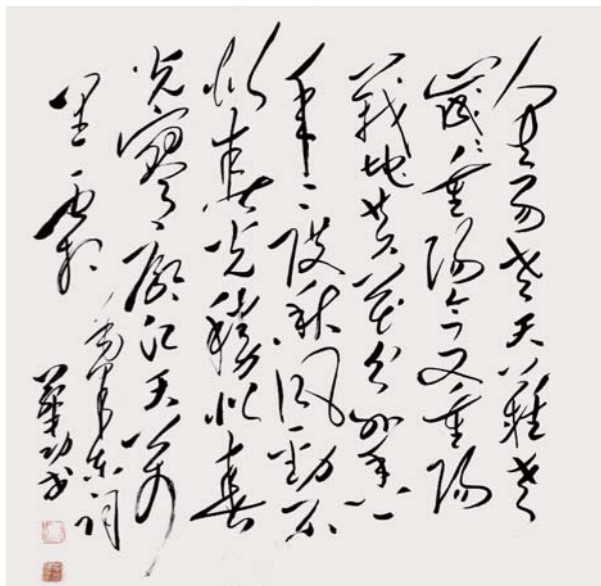 人生易老天難老
歲歲重陽今又重陽
戰地黃花分外香一
年一度秋風勁不
似春光勝似春
光寥廓江天萬
里霜
毛澤東詞
書